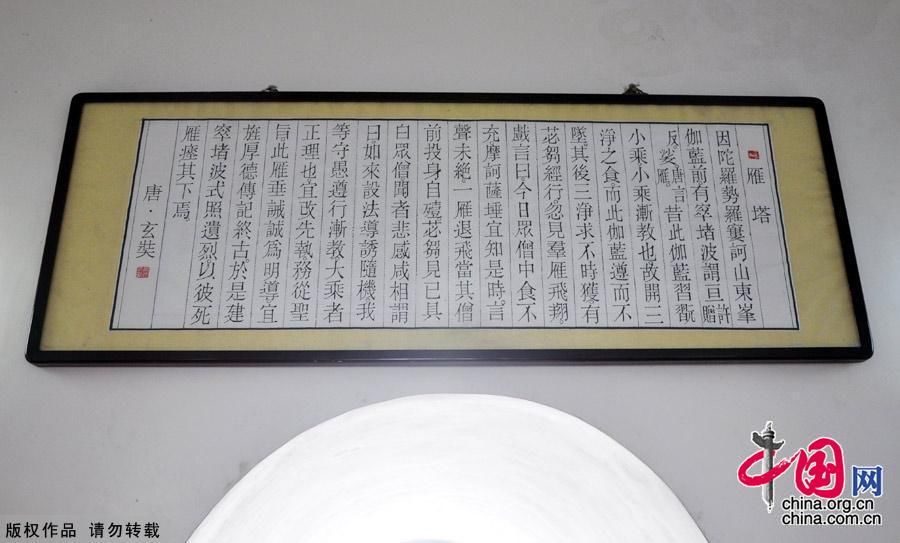 雁塔
因陀羅勢羅窶訶山東峯
伽藍前有窣堵波謂亘贈許
反娑唐言雁昔此伽藍習翫
小乘小乘漸教也故開三
淨之食而此伽藍遵而不
墜其後三淨求不時獲有
苾芻經行忽見羣雁飛翔
戲言曰今日眾僧中食不
充摩訶薩埵宜知是時言
聲未絶一雁退飛當其僧
前投身自殪苾芻見已具
白眾僧聞者悲感咸相謂
曰如來設法導誘隨機我
等守愚遵行漸教大乘者
正理也宜改先執務從聖
旨此雁垂誡誠爲明導宜
旌厚德傳記終古於是建
窣堵波式照遺烈以彼死
雁瘞其下焉
唐·玄奘
中国网
china.org.cn
china.com.cn
版权作品 请勿转载